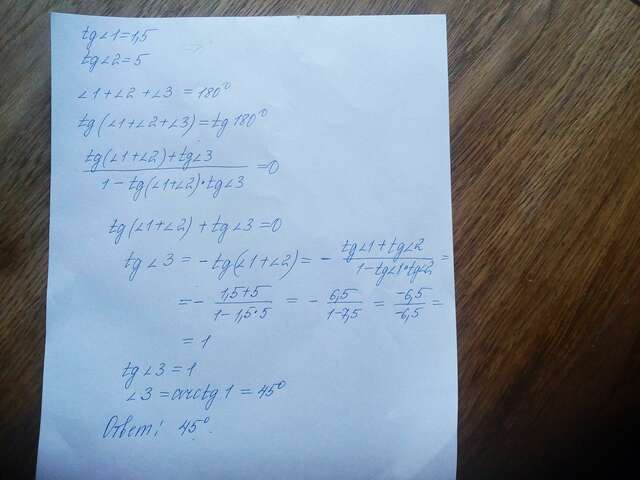 tg∠1=1,5
tg∠2=5
∠1+∠2+∠3=180°
tg(∠1+∠2+∠3)=tg180°
tg(∠1+∠2)+tg∠3
1-tg(∠1+∠2)·tg∠3 =0
tg(∠1+∠2)+tg∠3=0
tg∠3=-tg(∠1+∠2)=- tg∠1+tg∠2 / 1-tg∠1·tg∠2 =
=- 1,5+5 / 1-1,5·5 =- 6,5 / 1-7,5 = -6,5 / -6,5 =
=1
tg∠3=1
∠3=arctg1=45°
Ответ: 45°.